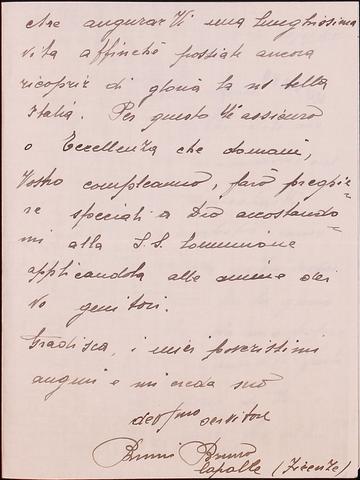 che augurarVi una lunghissima
vita affinchè possiate ancora
ricoprir di gloria la ns bella
Italia. Per questo Vi assicuro
o Eccellenza che domani,
Vostro compleanno, farò preghie=
re speciali a Dio accostando=
mi alla S.S. Comunione
applicandola alle anime dei
Vo genitori.
Gradisca, i miei poverissimi
auguri e mi creda suo
dev/mo servitore
Bruni Bruno
Capalle (Firenze)